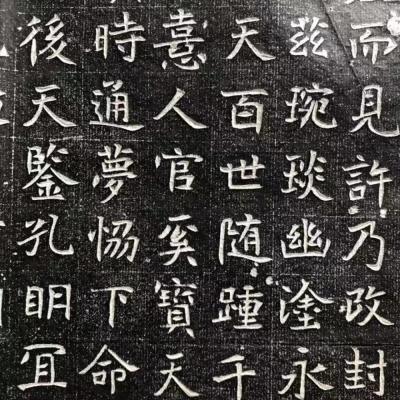 而見許乃政封
茲琬琰幽塗永
天百世随踵千
憙人官奚寶天
時通夢恊下命
後天鑒孔眀冝